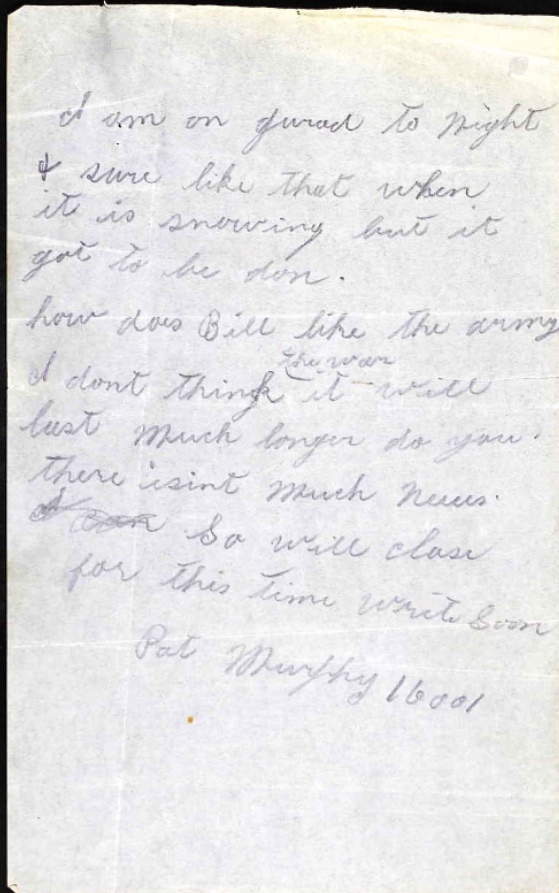 I am on gurad to Night
& sure like that when
it is snowing but it
got to be don.
how does Bill like the army
the war
I dont thingk it will
last Much longer do you.
there isint Much News.
I can So will close
for this time write Soon
Pat Murphy 16001